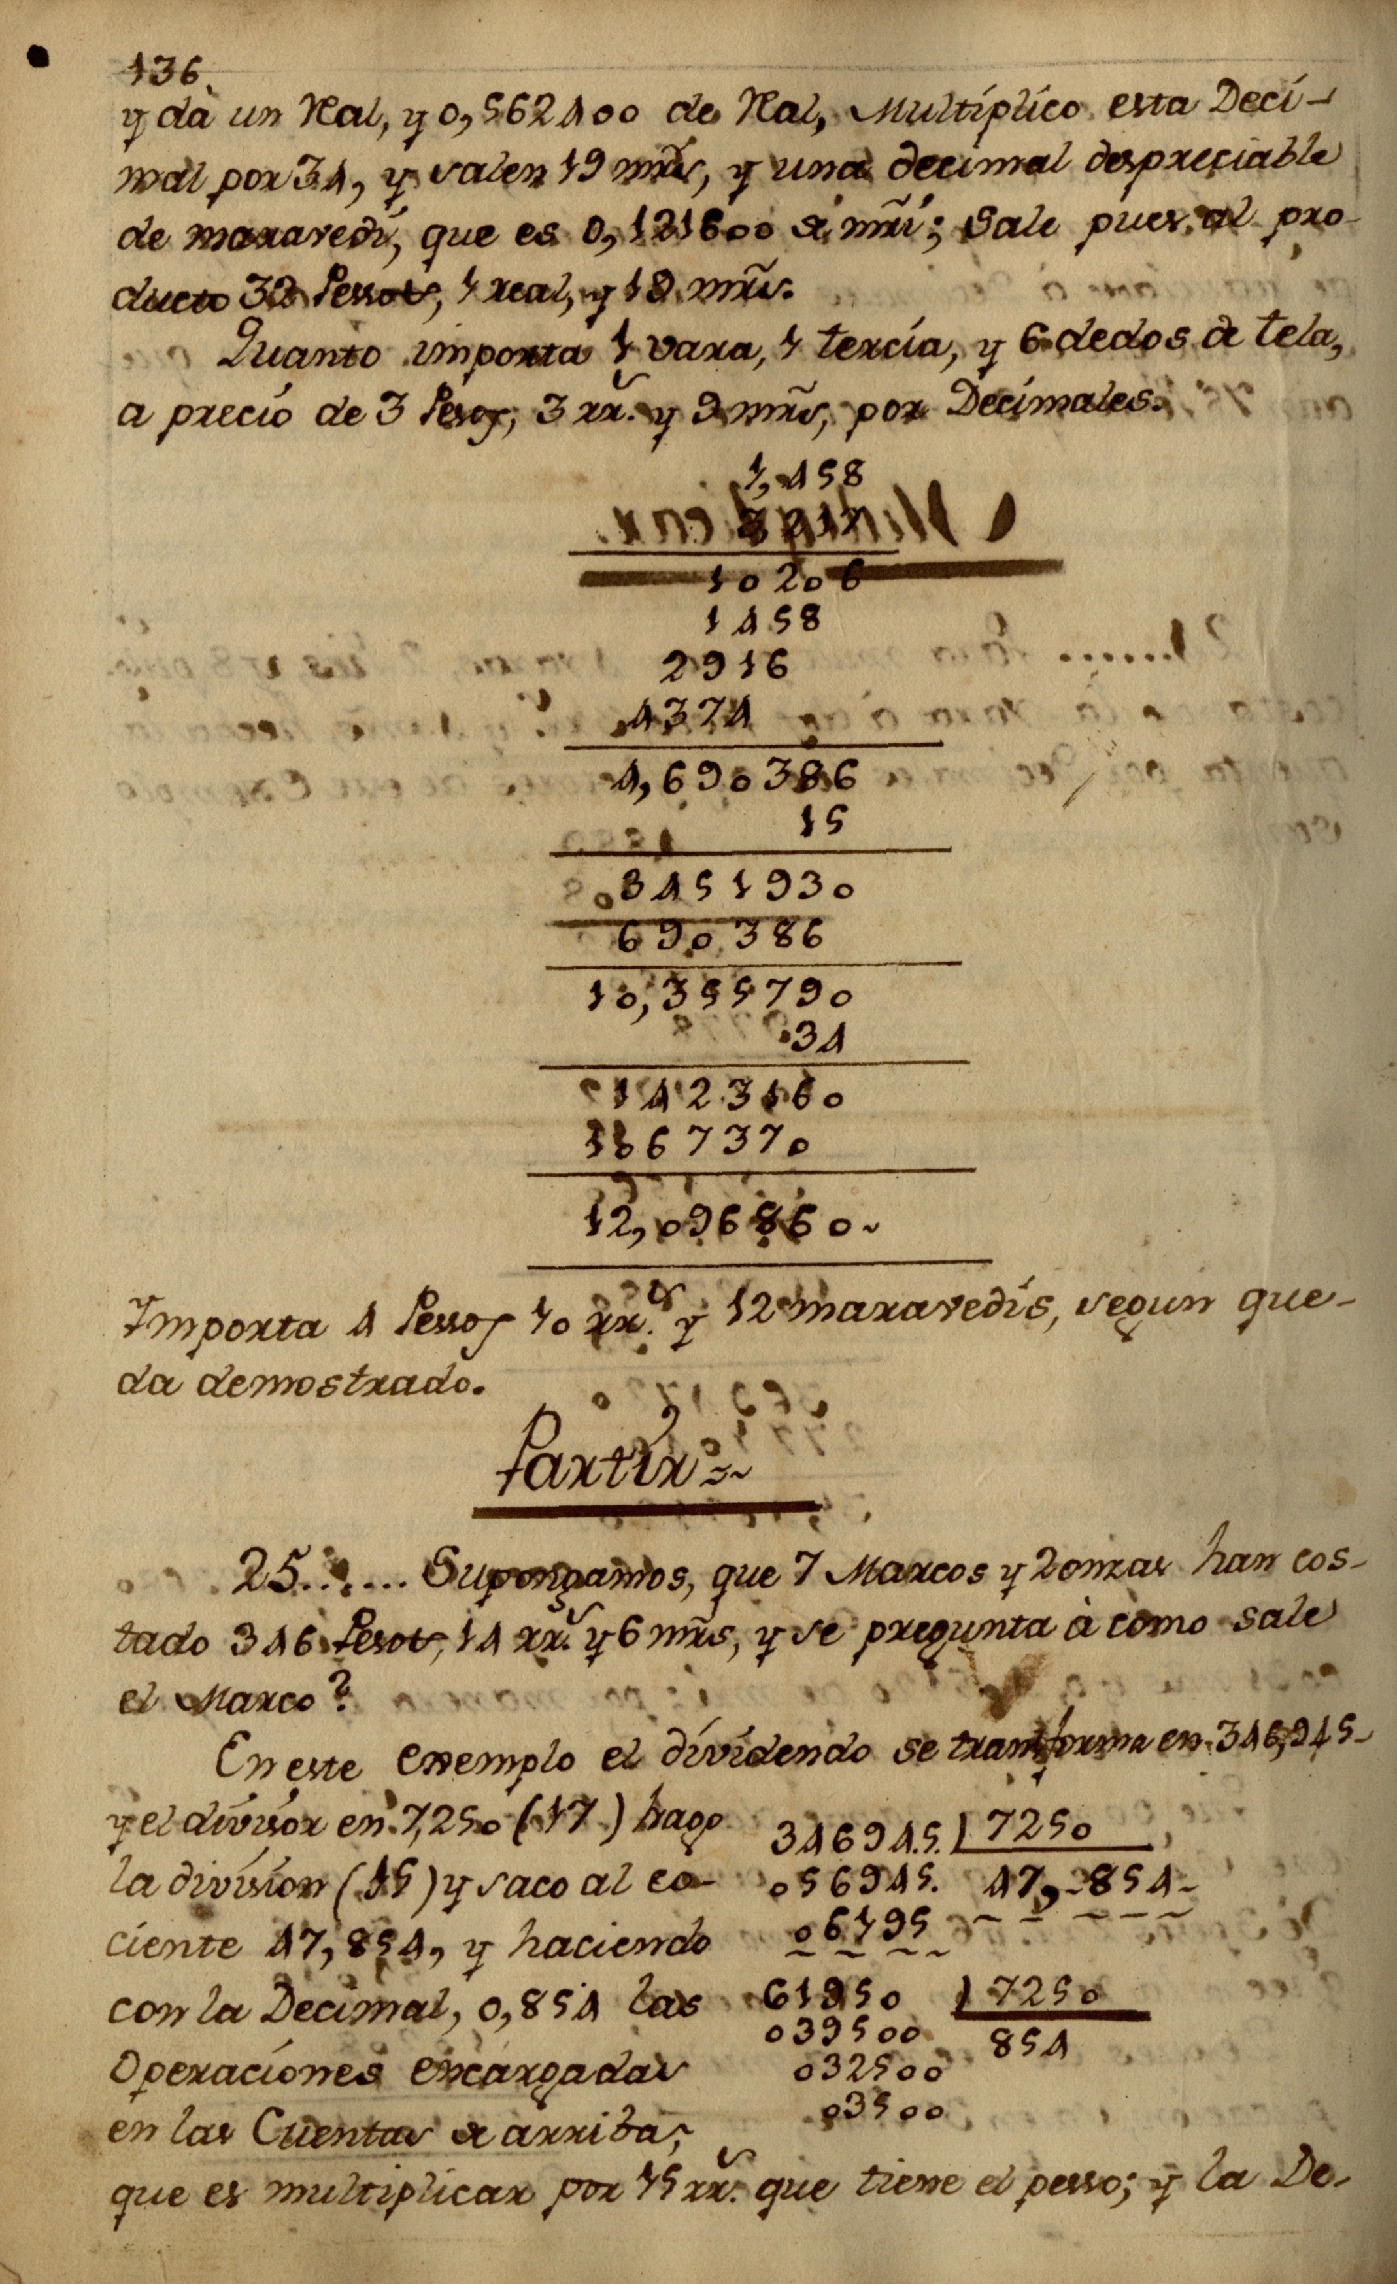 136.
y dà un Real, y 0,562400 de Real, Multíplíco esta Deci-
mal por 34, y salen 19 mr̃s, y una decimal despreciable
de maravedi, que es 0,121600 de mr̃i; Sale pues al pro-
ducto 32 Pessos, 1 real, y 19 mr̃s.
Quanto importa 1 vara, 1 tercia, y 6 dedos de tela,
a precio de 3 Pesos, 3 rr.s y 9 mr̃s, por Decimales.
1,458
3 217
10206
1458
2916
4374
4,690386
15
3451930
690386
10,355790
34
1423160
1067370
12,096860~
Importa 4 Pessos 10 rr.s y 12 maravedis, segun que-
da demostrado.
Partir
25...... Supongamos, que 7 Marcos y 2 onzas han cos-
tado 346 Pesos, 14 rr.s y 6 mr̃s, y se pregunta à como sale
el Marco?
En este exemplo el dividendo se transforma en 346,945-
y el divisor en 7,250 (17) hago
la division (15) y saco al co-
ciente 47,854, y haciendo
con la Decimal, 0,854 las
Operaciones encargadas
en las Cuentas de arriba,
346945. | 7250
056945. 47,-854-
06195
61950 | 7250
039500 854
032500
03500
que es multiplicar por 15 rr.s que tiene el pesso; y la De-